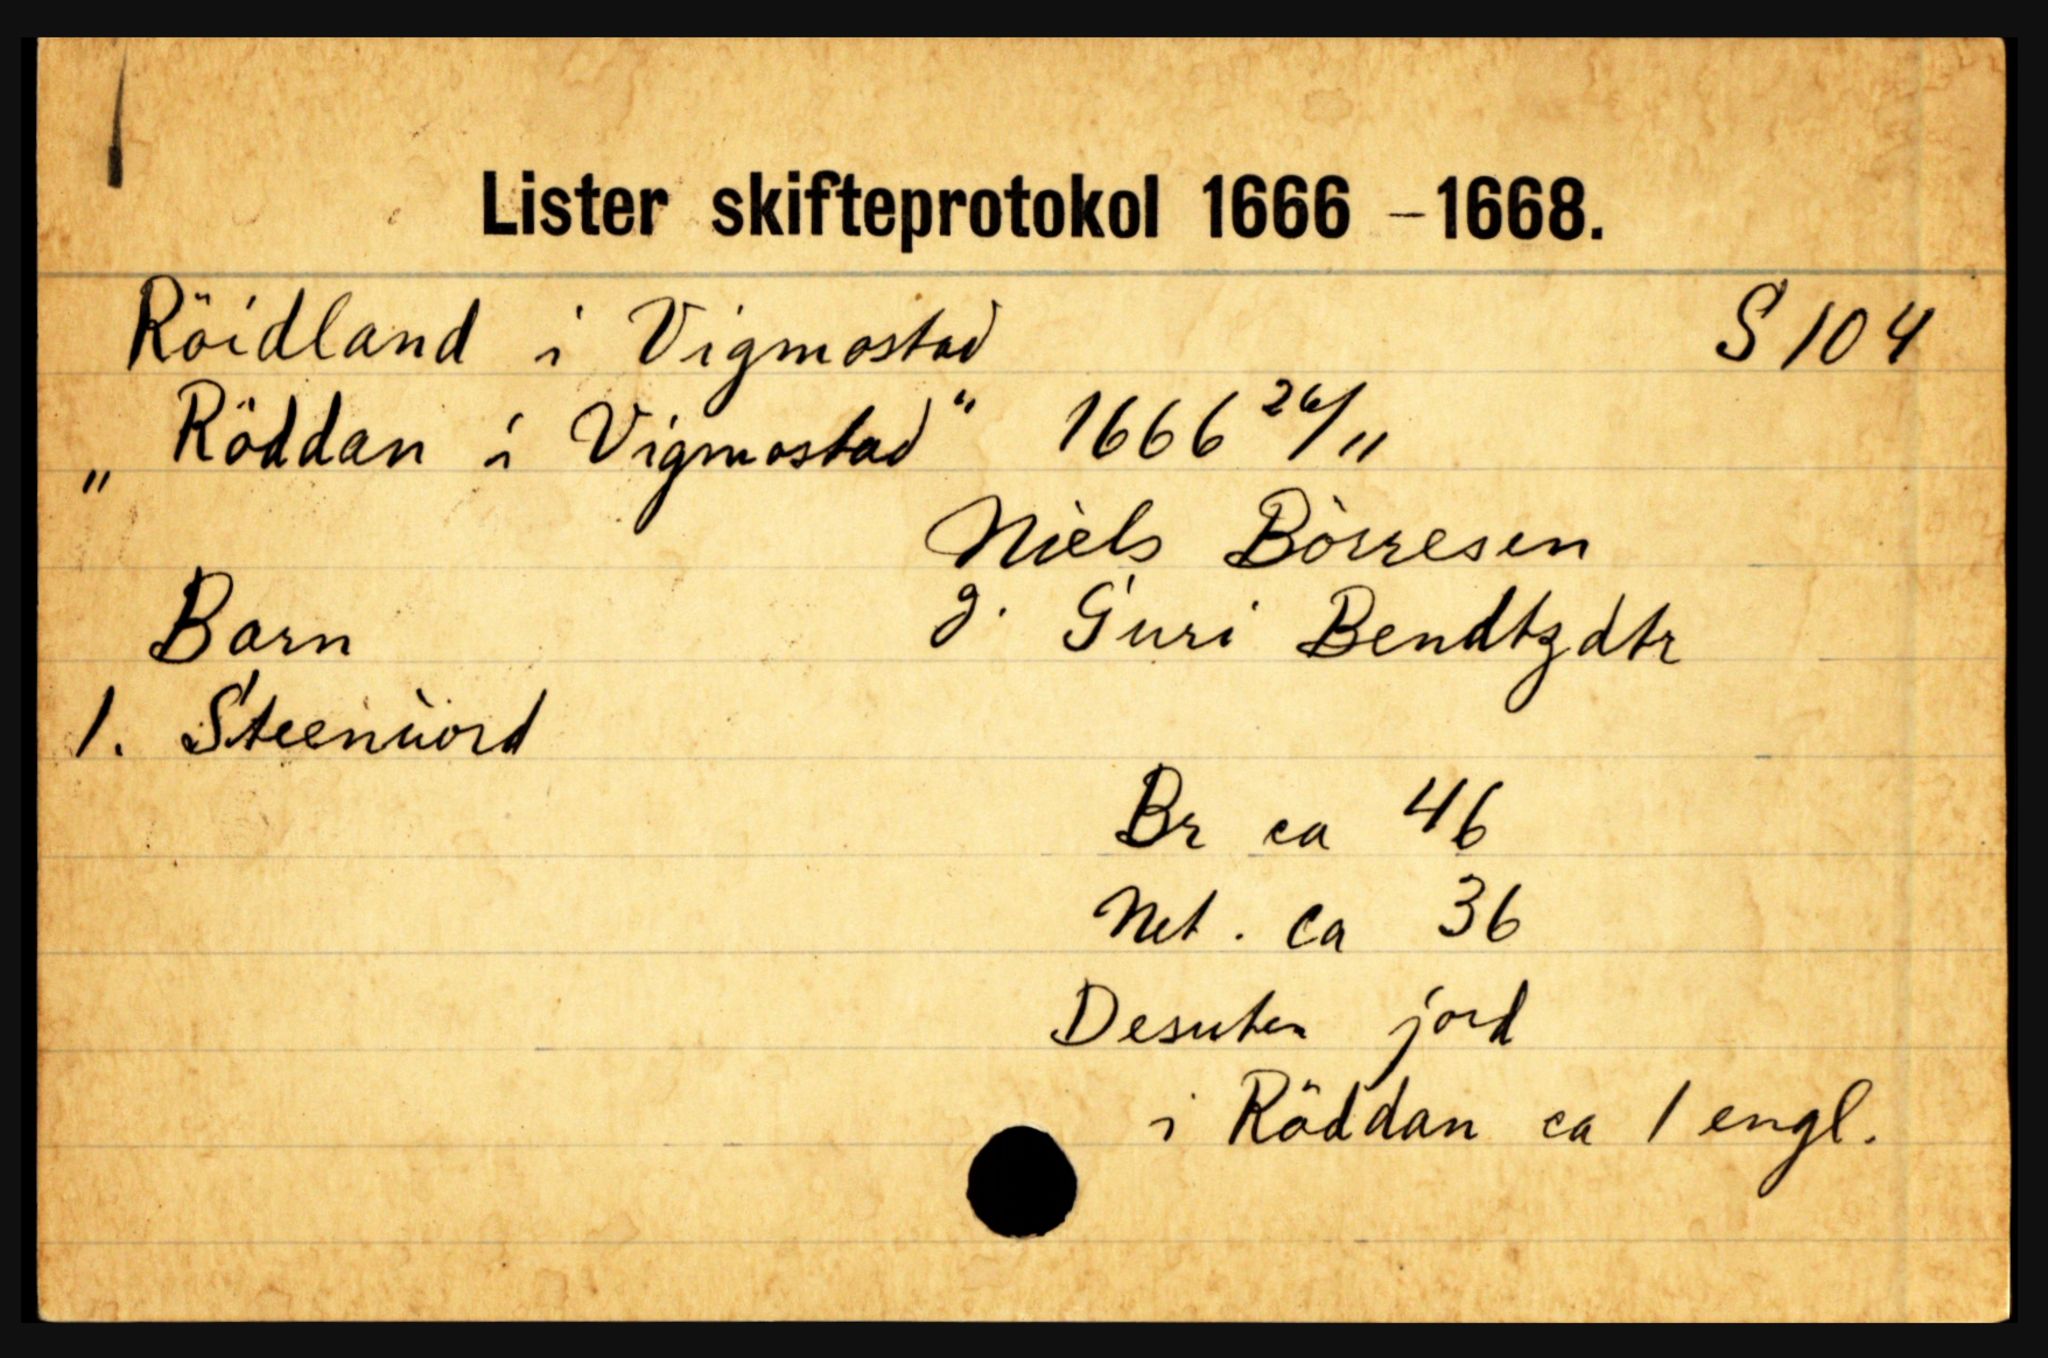 Lister skifteprotokol 1666 - 1668.
Röidland i Vigmostad S 104
„ Röddan i Vigmostad“ 1666 26/11
Niels Börresen
Barn g. Guri Bendtzdtr
1. Steenuord
Br ca 46
Net. ca 36
Desuten jord
i Röddan ca 1 engl.